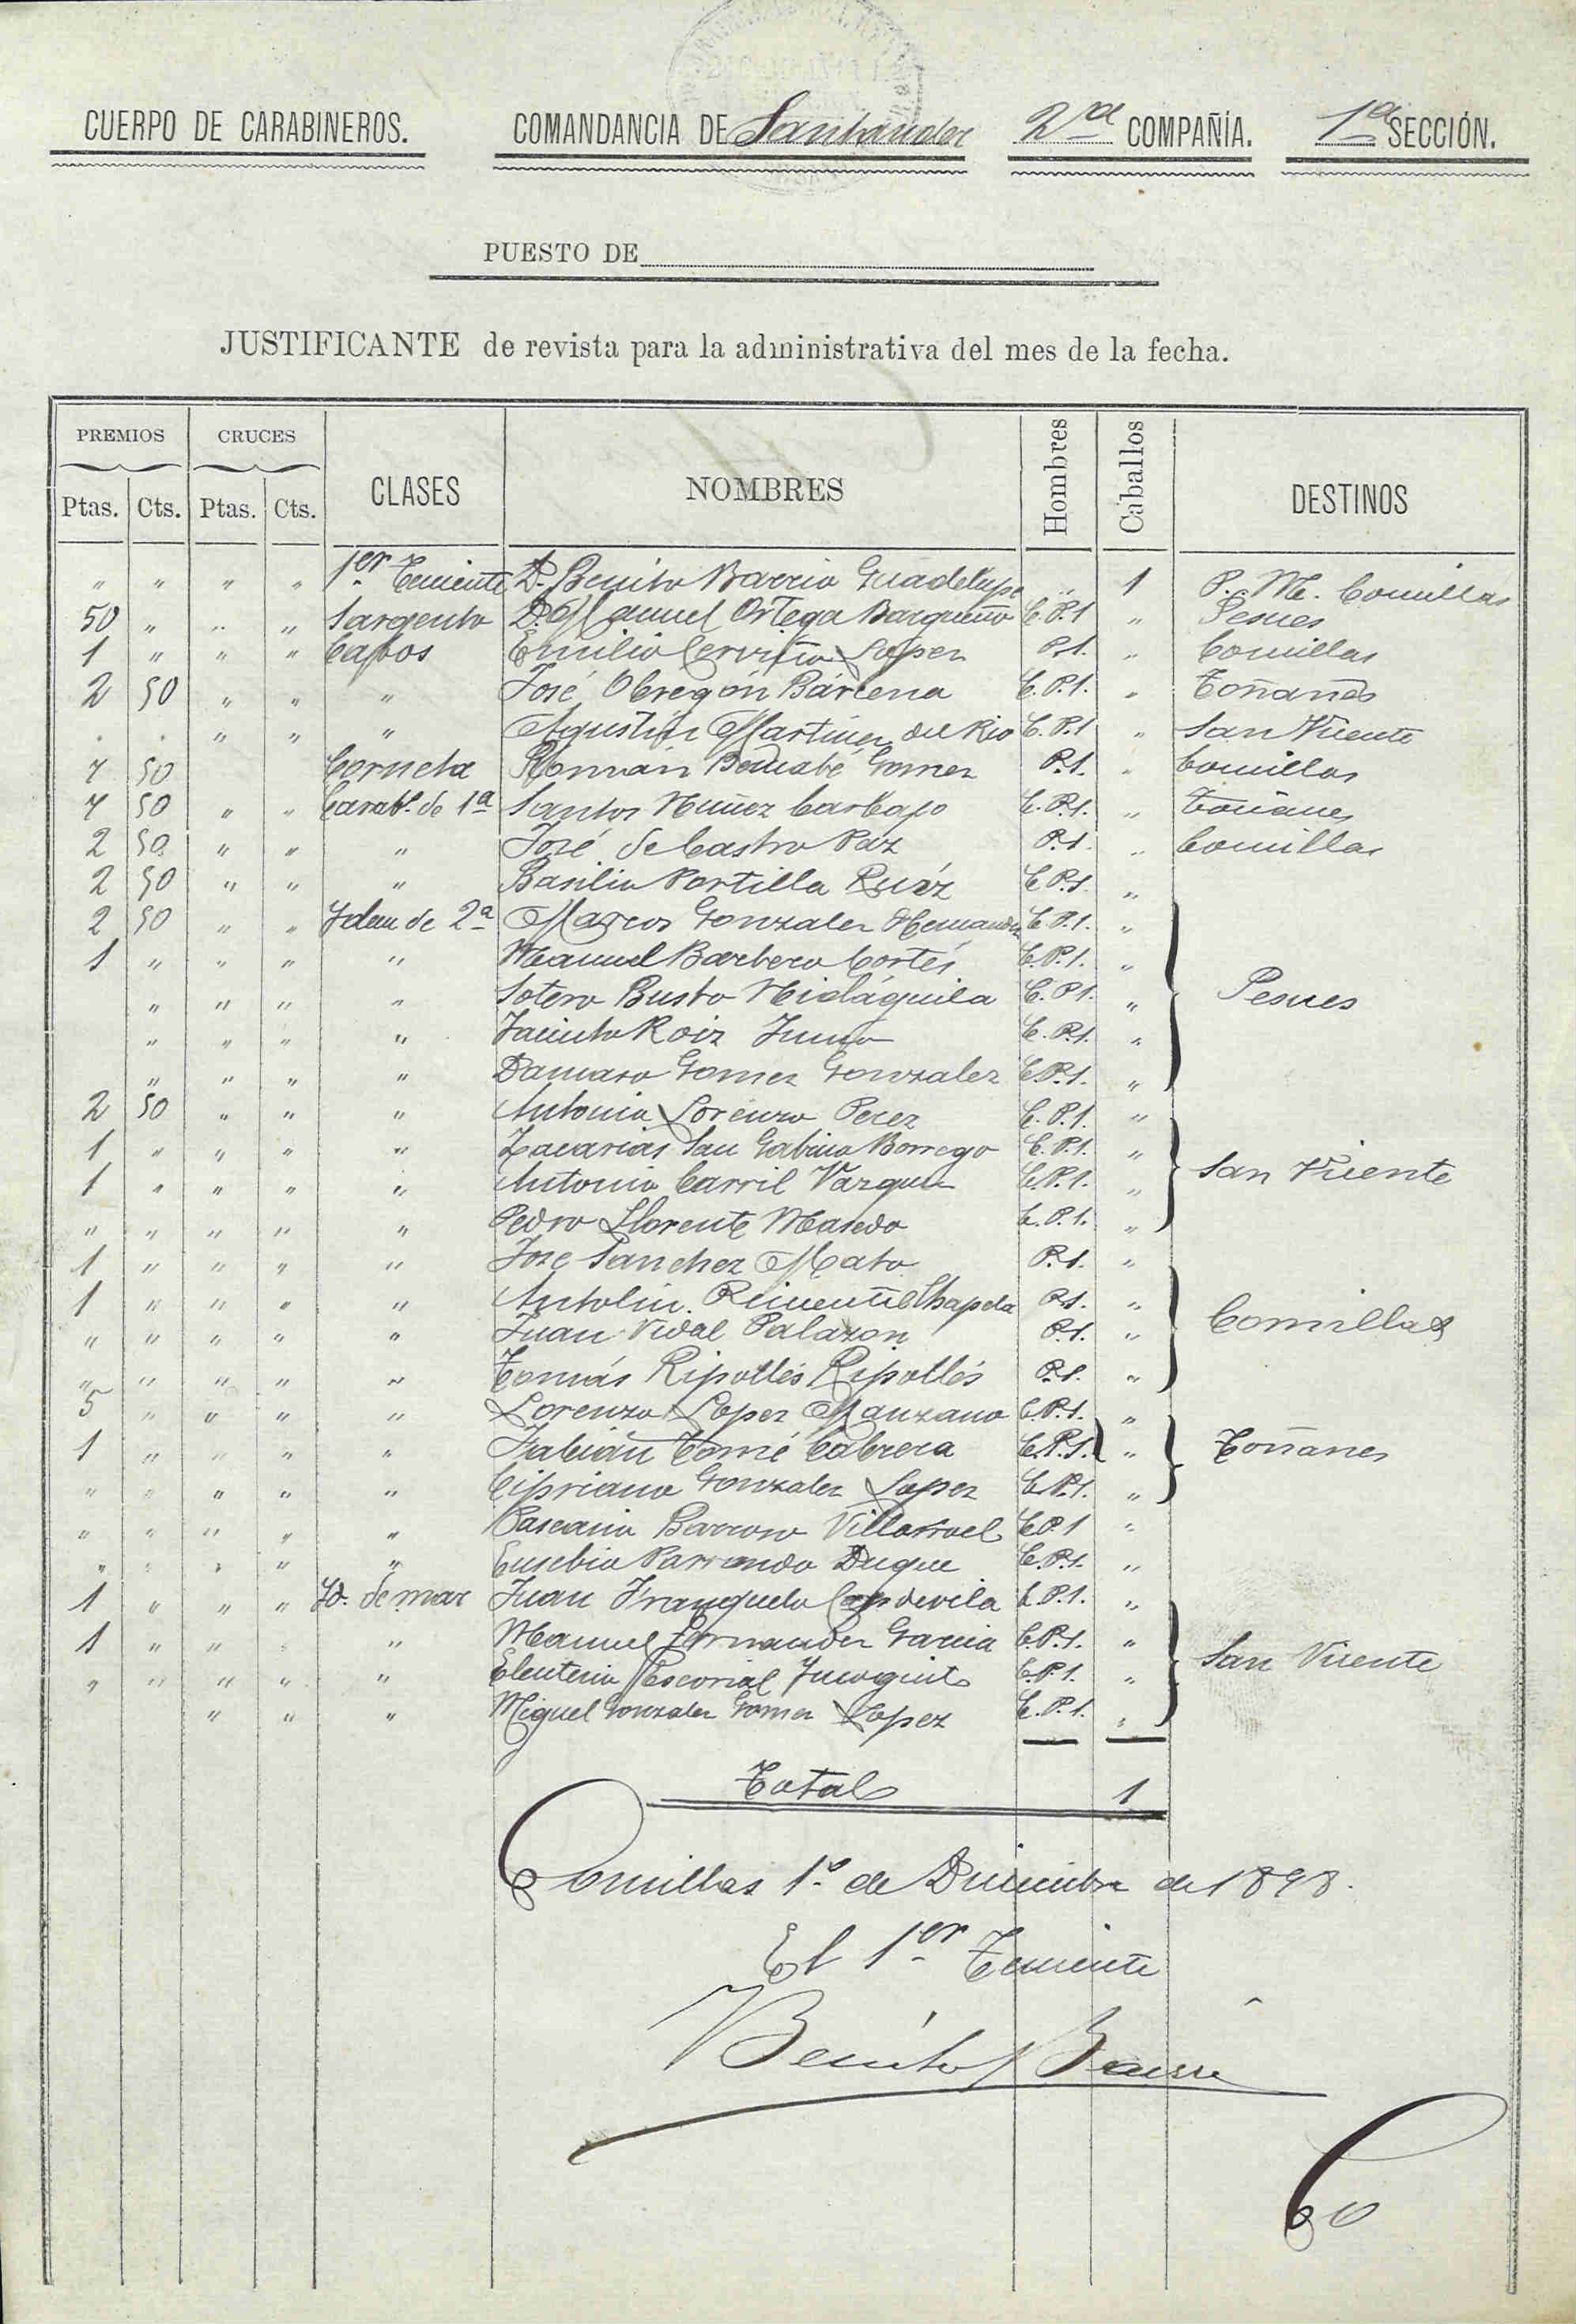 CUERPO DE CARABINEROS. COMANDANCIA DE Santander 2ª COMPAÑÍA. 1ª SECCIÓN.
PUESTO DE
JUSTIFICANTE de revista para la administrativa del mes de la fecha.
PREMIOS CRUCES CLASES NOMBRES Hombres Caballos DESTINOS
Ptas. Cts. Ptas. Cts.
" " " " 1er Teniente D. Benito Barrio Guadelupe " 1 P. M. Comillas
50 " " " Sargento D. Manuel Ortega Barqueño C. P. 1 " Pesues
1 " " " Cabos Emilio Cerviño Lopez P. 1. " Comillas
2 50 " " " José Obregón Bárcena C. P. 1. " Toñanes
. . " " " Agustín Martinez del Rio C. P. 1 " San Vicente
7 50 Corneta Román Bernabé Gomez P. 1. " Comillas
7 50 " " Carabº de 1ª Santos Nuñez Carbajo C. P. 1. " Toñanes
2 50 " " " José de Castro Paz P. 1. " Comillas
2 50 " " " Basilio Portilla Ruiz C. P. 1. "
2 50 " " Idem de 2ª Marcos Gonzalez Hernandez C. P. 1. "
1 " " " " Manuel Barbero Cortés C. P. 1. "
" " " " Sotero Busto C. P. 1. " Pesues
" " " " Jacinto Roiz C. P. 1. "
" " " " Damaso Gomez Gonzalez C. P. 1. "
2 50 " " " Antonio Lorenzo Perez C. P. 1. "
1 " " " " Zacarias San Gabino Borrego C. P. 1. "
1 " " " " Antonio Carril Vazquez C. P. 1. " San Vicente
" " " " " Pedro Llorente Masedo C. P. 1. "
1 " " " " Jose Sanchez Mato P. 1. "
1 " " " " Antolin Chapela P. 1. " Comillas
" " " " " Juan Vidal Palazon P. 1. "
" " " " " Tomás Ripollés Ripollés P. 1. "
5 " " " " Lorenzo Lopez Manzano C. P. 1. "
1 " " " " Fabián Tomé Cabrera C. P. 1. " Toñanes
" " " " " Cipriano Gonzalez Lopez C. P. 1. "
" " " " " Pascasio Barroso Villarroel C. P. 1 "
" " " " " Eusebio Parrondo Duque C. P. 1. "
1 " " " Id. de mar Juan Franquelo Capdevila C. P. 1. "
1 " " " " Manuel Fernandez Garcia C. P. 1. "
" " " " " Eleuterio Escorial C. P. 1. " San Vicente
" " " Miguel Gonzalez Gomez Lopez C. P. 1. "
Total 1
Comillas 1º de Diciembre de 1898.
El 1er Teniente
Benito Barrio